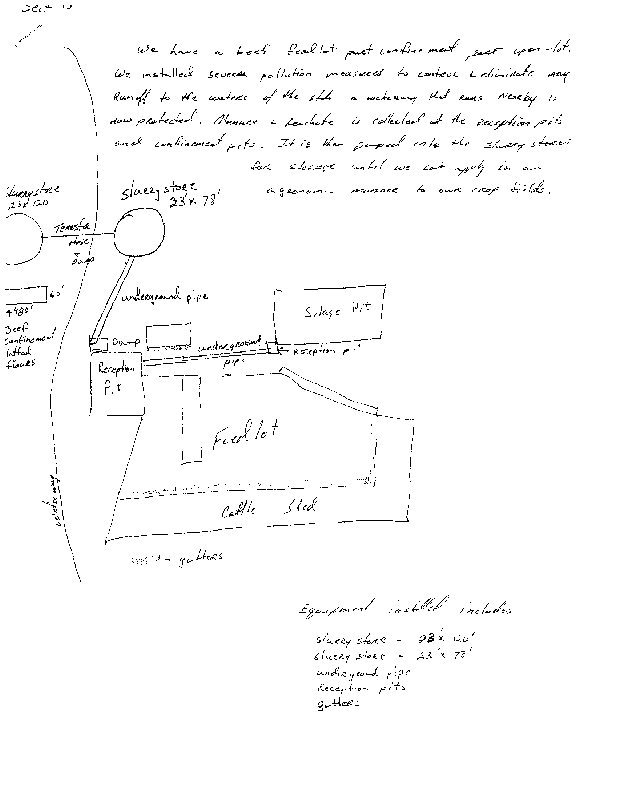 Sect 10
We have a beef feedlot part confinement part open-lot.
We installed several pollution measures to control & eliminate any
Runoff to the waters of the state a waterway that runs nearby is
now protected. Manure & leachate is collected at the reception pits
and confinement pits. It is then pumped into the slurry stores
for storage until we can apply in an
agronomic manner to our crop fields.
Slurry store
23' x 120'
Slurry store
23' x 78'
Transfer
Pump
underground pipe
60'
Beef
confinement
slatted
floors
Pump
underground
pipe
Silage Pit
Reception pit
Reception
Pit
Feed lot
waterway
Cattle Shed
- gutters
Equipment installed includes
slurry store - 23' x 120'
slurry store - 23' x 78'
underground pipe
Reception pits
gutters